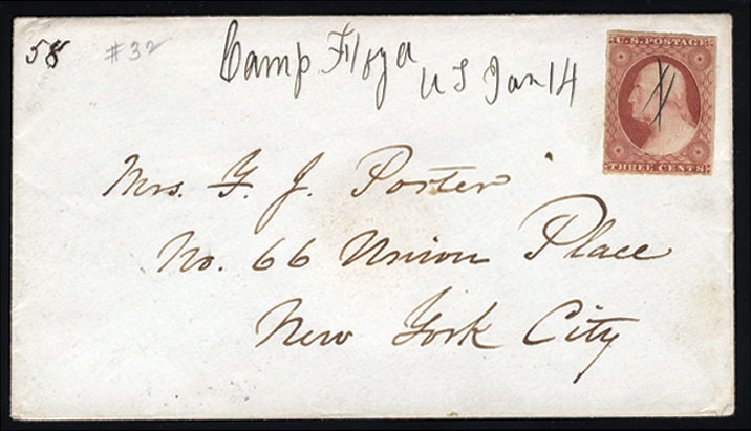 58 #32
Camp Floyd
U S Jan 14
U.S. POSTAGE
THREE CENTS
Mrs. F. J. Porter
No. 66 Union Place
New York City